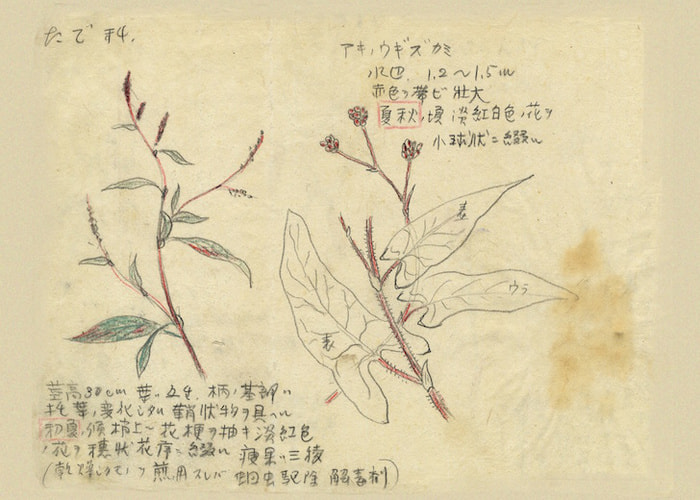 たで科.
アキノウギズカミ
水辺 1.2〜1.5m
赤色ヲ帯ビ壮大
夏秋ノ頃 淡紅白色ノ花ヲ
小球状ニ綴ル
表
ウラ
表
茎高30cm 葉ハ互生 柄ノ基部ハ
托葉ノ変化シタル鞘状物ヲ具ヘル
初夏ノ頃梢上ニ花梗ヲ抽キ淡紅色
ノ花ヲ穂状花序ニ綴ル 痩果ハ三稜
(乾燥シタモノヲ煎用スレバ 蛔虫駆除 解毒剤)